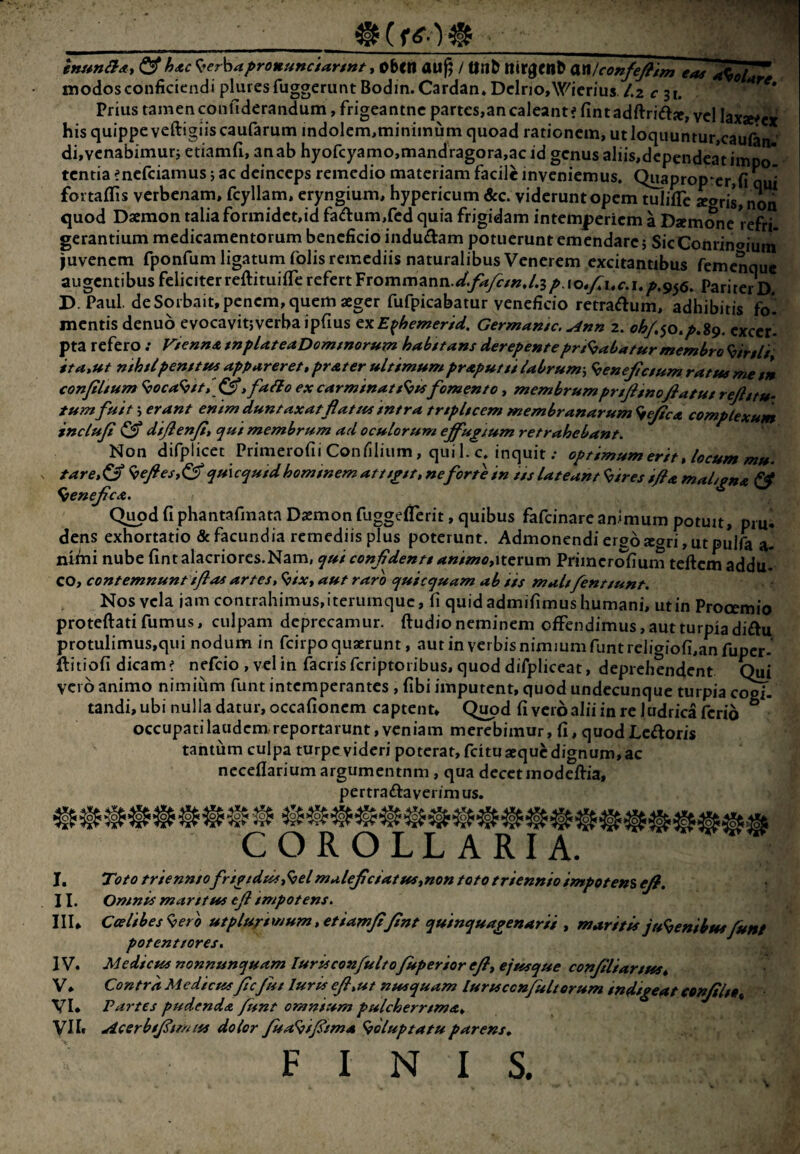 ❁(56.)❁
enunctæ, & hæc verba pronunciarint, oben auß / und nirgend an/confestim eas avolare.
modos conficiendi plures suggerunt Bodin. Cardan. Delrio, Wierius l.2 c 31.
Prius tamen considerandum, frigeantne partes, an caleant? sint adstrictæ, vel laxæ? ex
his quippe vestigiis causarum indolem, minimùm quoad rationem, ut loquuntur, causan-
di, venabimur; etiamsi, an ab hyoscyamo, mandragora, ac id genus aliis, dependeat impo-
tentia? nesciamus; ac deinceps remedio materiam facilè inveniemus. Quapropter, si qui
fortassis verbenam, scyllam, eryngium, hypericum &c. viderunt opem tulisse ægris, non
quod Dæmon talia formidet, id factum, sed quia frigidam intemperiem à Dæmone refri-
gerantium medicamentorum beneficio inductam potuerunt emendare; Sic Conringium
juvenem sponsum ligatum solis remediis naturalibus Venerem excitantibus semenque
augentibus feliciter restituisse refert Frommann. d. fascin. l.3 p. 10. s. 1. c. 1. p. 956. Pariter D.
D. Paul. de Sorbait, penem, quem æger suspicabatur veneficio retractum, adhibitis fo-
mentis denuò evocavit; verba ipsius ex Ephemerid. Germanic. Ann 2. obs. 50. p. 89. excer-
pta refero: Viennæ in platea Dominorum habitans derepente privabatur membro virili,
ita, ut nihil penitus appareret, præter ultimum præputii labrum; veneficium ratus me in
consilium vocavit, &, facto ex carminativis fomento, membrum pristino statui restitu-
tum fuit; erant enim duntaxat flatus intra triplicem membranarum vesicæ complexum
inclusi & distensi, qui membrum ad oculorum effugium retrahebant.
Non displicet Primerosii Consilium, qui l. c. inquit: optimum erit, locum mu-
tare, & vestes, & quicquid hominem attigit, ne fortè in iis lateant vires istæ malignæ &
veneficæ.
Quod si phantasmata Dæmon suggesserit, quibus fascinare animum potuit, pru-
dens exhortatio & facundia remediis plus poterunt. Admonendi ergò ægri, ut pulsa a-
nimi nube sint alacriores. Nam, qui confidenti animo, iterum Primerosium testem addu-
co, contemnunt istas artes, vix, aut rarò quicquam ab iis mali sentiunt.
Nos vela jam contrahimus, iterumque, si quid admisimus humani, ut in Prooemio
protestati sumus, culpam deprecamur. studio neminem offendimus, aut turpia dictu
protulimus, qui nodum in scirpo quærunt, aut in verbis nimium sunt religiosi, an super-
stitiosi dicam? nescio, vel in sacris scriptoribus, quod displiceat, deprehendent. Qui
verò animo nimiùm sunt intemperantes, sibi imputent, quod undecunque turpia cogi-
tandi, ubi nulla datur, occasionem captent. Quod si verò alii in re ludricâ seriò
occupati laudem reportarunt, veniam merebimur, si, quod Lectoris
tantùm culpa turpe videri poterat, scitu æquè dignum, ac
necessarium argumentnm, qua decet modestia,
pertractaverimus.
COROLLARIA.
I. Toto triennio frigidus, vel maleficiatus, non toto triennio impotens est.
II. Omnis maritus est impotens.
III. Cælibes verò utplurimum, etiamsi sint quinquagenarii, maritis juvenibus sunt
potentiores.
IV. Medicus nonnunquam Jurisconsulto superior est, ejusque consiliarius.
V. Contrà Medicus sic sui Juris est, ut nusquam Jurisconsultorum indigeat consilio.
VI. Partes pudendæ sunt omnium pulcherrimæ.
VII. Acerbissimus dolor suavissima voluptatu parens.
FINIS.